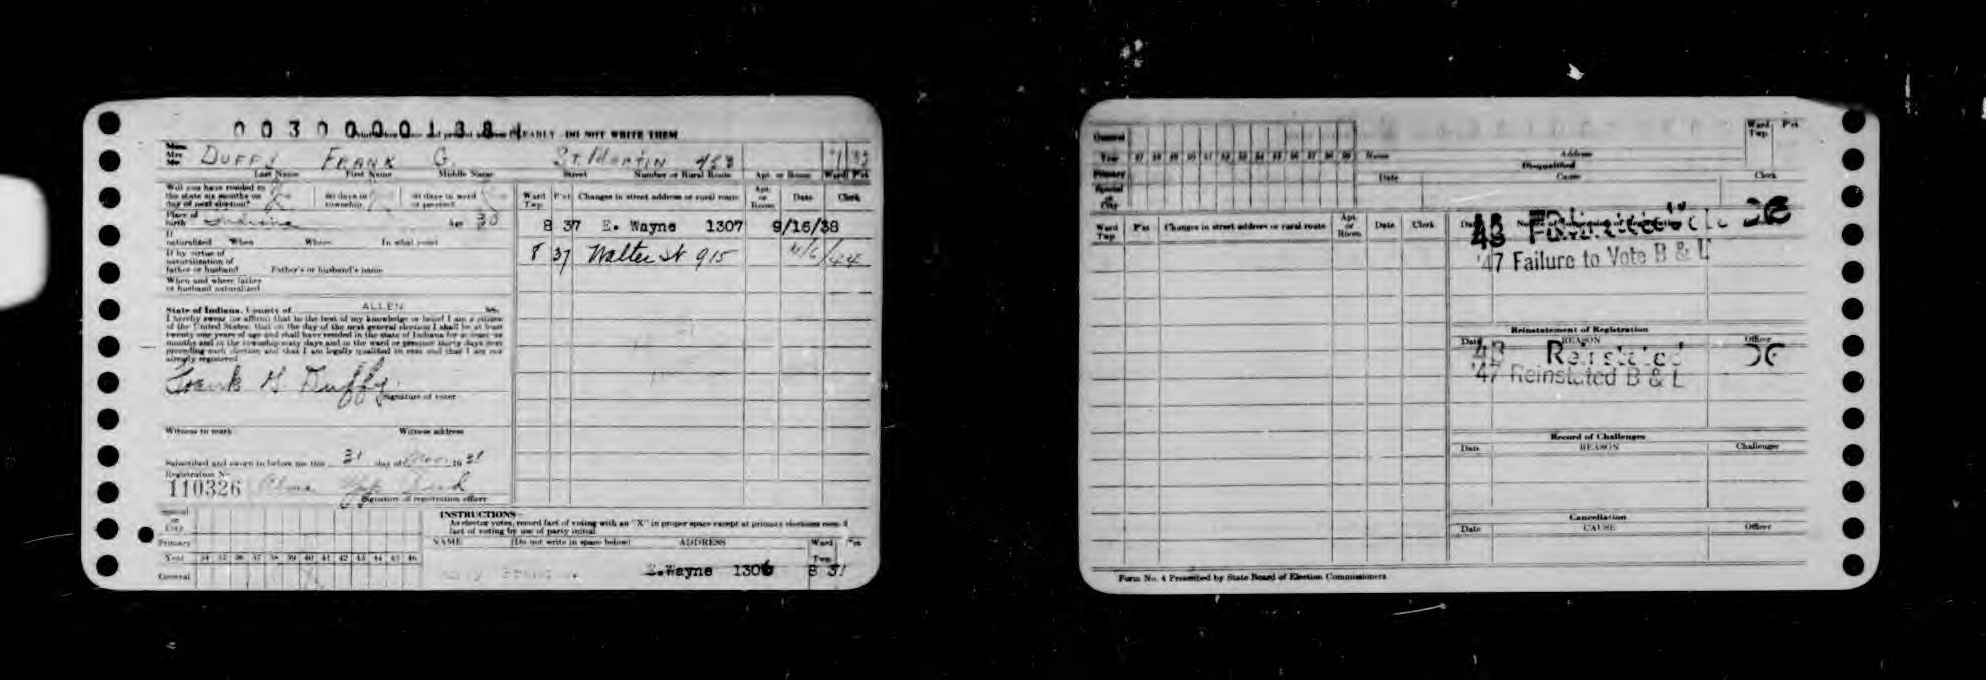 0030000138
EARLY DO NOT WRITE THEM
DUFFY FRANK G. ST. MARTIN 7 32
Last Name First Name Middle Name Street Number or Rural Route Apt. or Room Ward Pct
Will you have resided in the state six months on day of next election? 60 days in township 30 days in ward or precinct
Place of birth Indiana Age 30
If naturalized When Where In what court
If by virtue of naturalization of father or husband Father's or husband's name
When and where father or husband naturalized
Ward Twp. Pct Changes in street address or rural route Apt. or Room Date Clerk
8 37 E. Wayne 1307 9/16/38
8 37 Walter St 915 /6/44
State of Indiana, County of ALLEN ss.
I hereby swear (or affirm) that to the best of my knowledge or belief I am a citizen
of the United States, that on the day of the next general election I shall be at least
twenty-one years of age and shall have resided in the state of Indiana for at least six
months and in the township sixty days and in the ward or precinct thirty days next
preceding such election and that I am legally qualified to vote and that I am not
already registered
Frank G Duffy
Signature of voter
Witness to mark Witness address
Subscribed and sworn to before me this 31 day of 19
Registration No.
110326
Signature of registration officer
INSTRUCTIONS
As elector votes, record fact of voting with an "X" in proper space except at primary elections record
fact of voting by use of party initial.
Special or City
Primary
Year 34 35 36 37 38 39 40 41 42 43 44 45 46
General
NAME (Do not write in space below) ADDRESS Ward Twp Pct
E. Wayne 130 8 37
General
Year 47 48 49 50 51 52 53 54 55 56 57 58 59
Primary
Special or City
Name Address Ward Twp. Pct
Disqualified
Date Cause Clerk
Ward Twp. Pct Changes in street address or rural route Apt. or Room Date Clerk
'47 Failure to Vote B & L
Reinstatement of Registration
Date REASON Officer
43 Reinstated
'47 Reinstated B & L
Record of Challenges
Date REASON Challenger
Cancellation
Date CAUSE Officer
Form No. 4 Prescribed by State Board of Election Commissioners